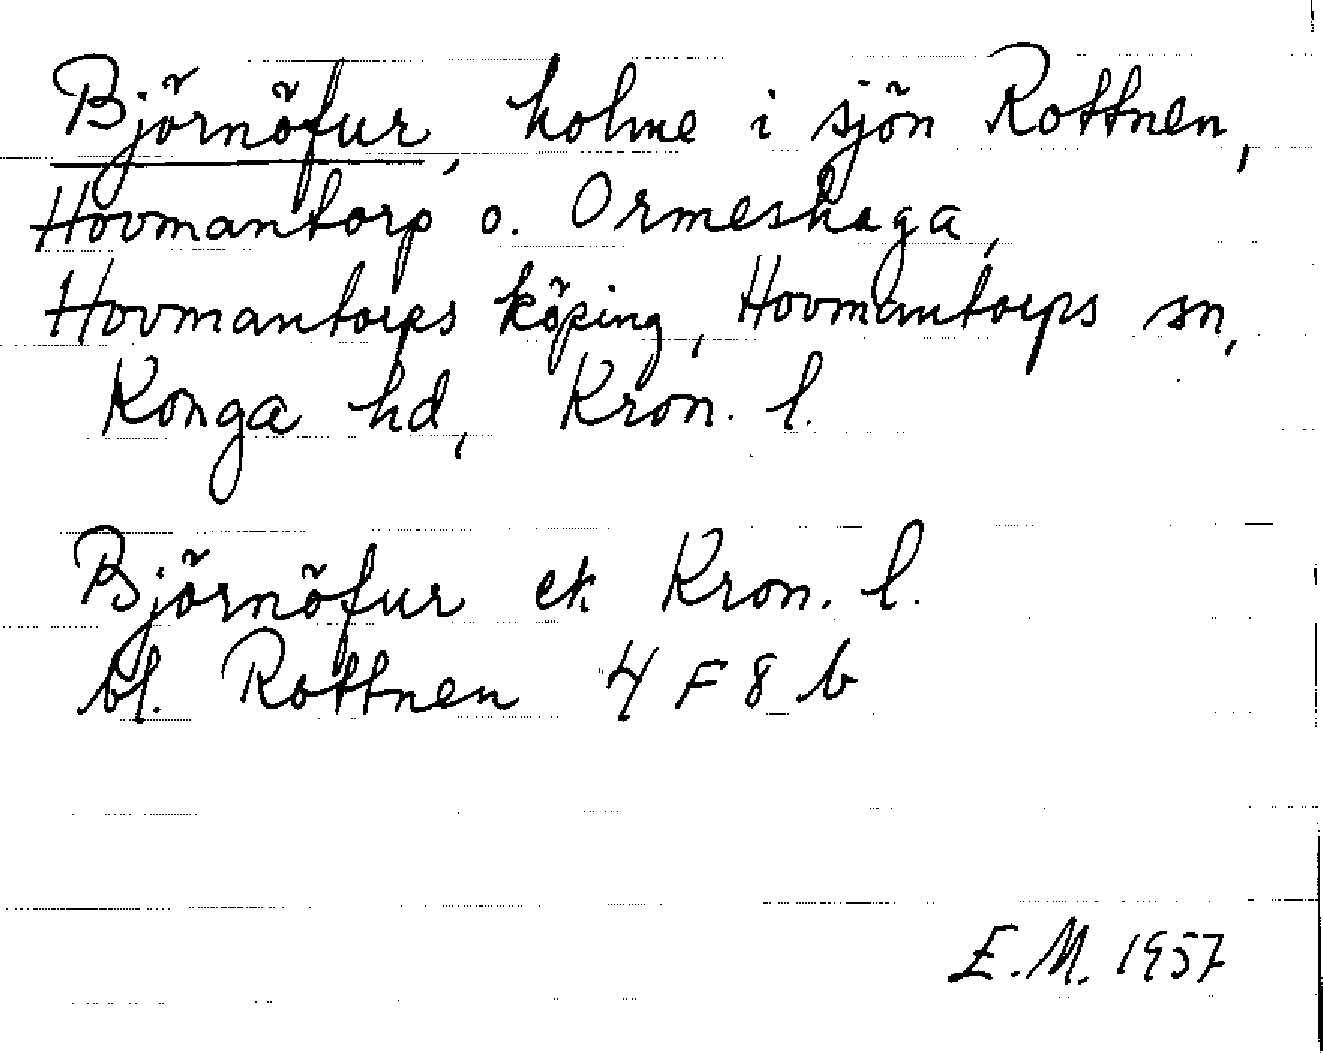 Björnöfur, holme i sjön Rottnen,
Hovmantorp o. Ormeshaga,
Hovmantorps köping, Hovmantorps sn,
Konga hd, Kron. l.
Björnöfur ek Kron. l.
bl. Rottnen 4 F 8 b
E.M. 1957